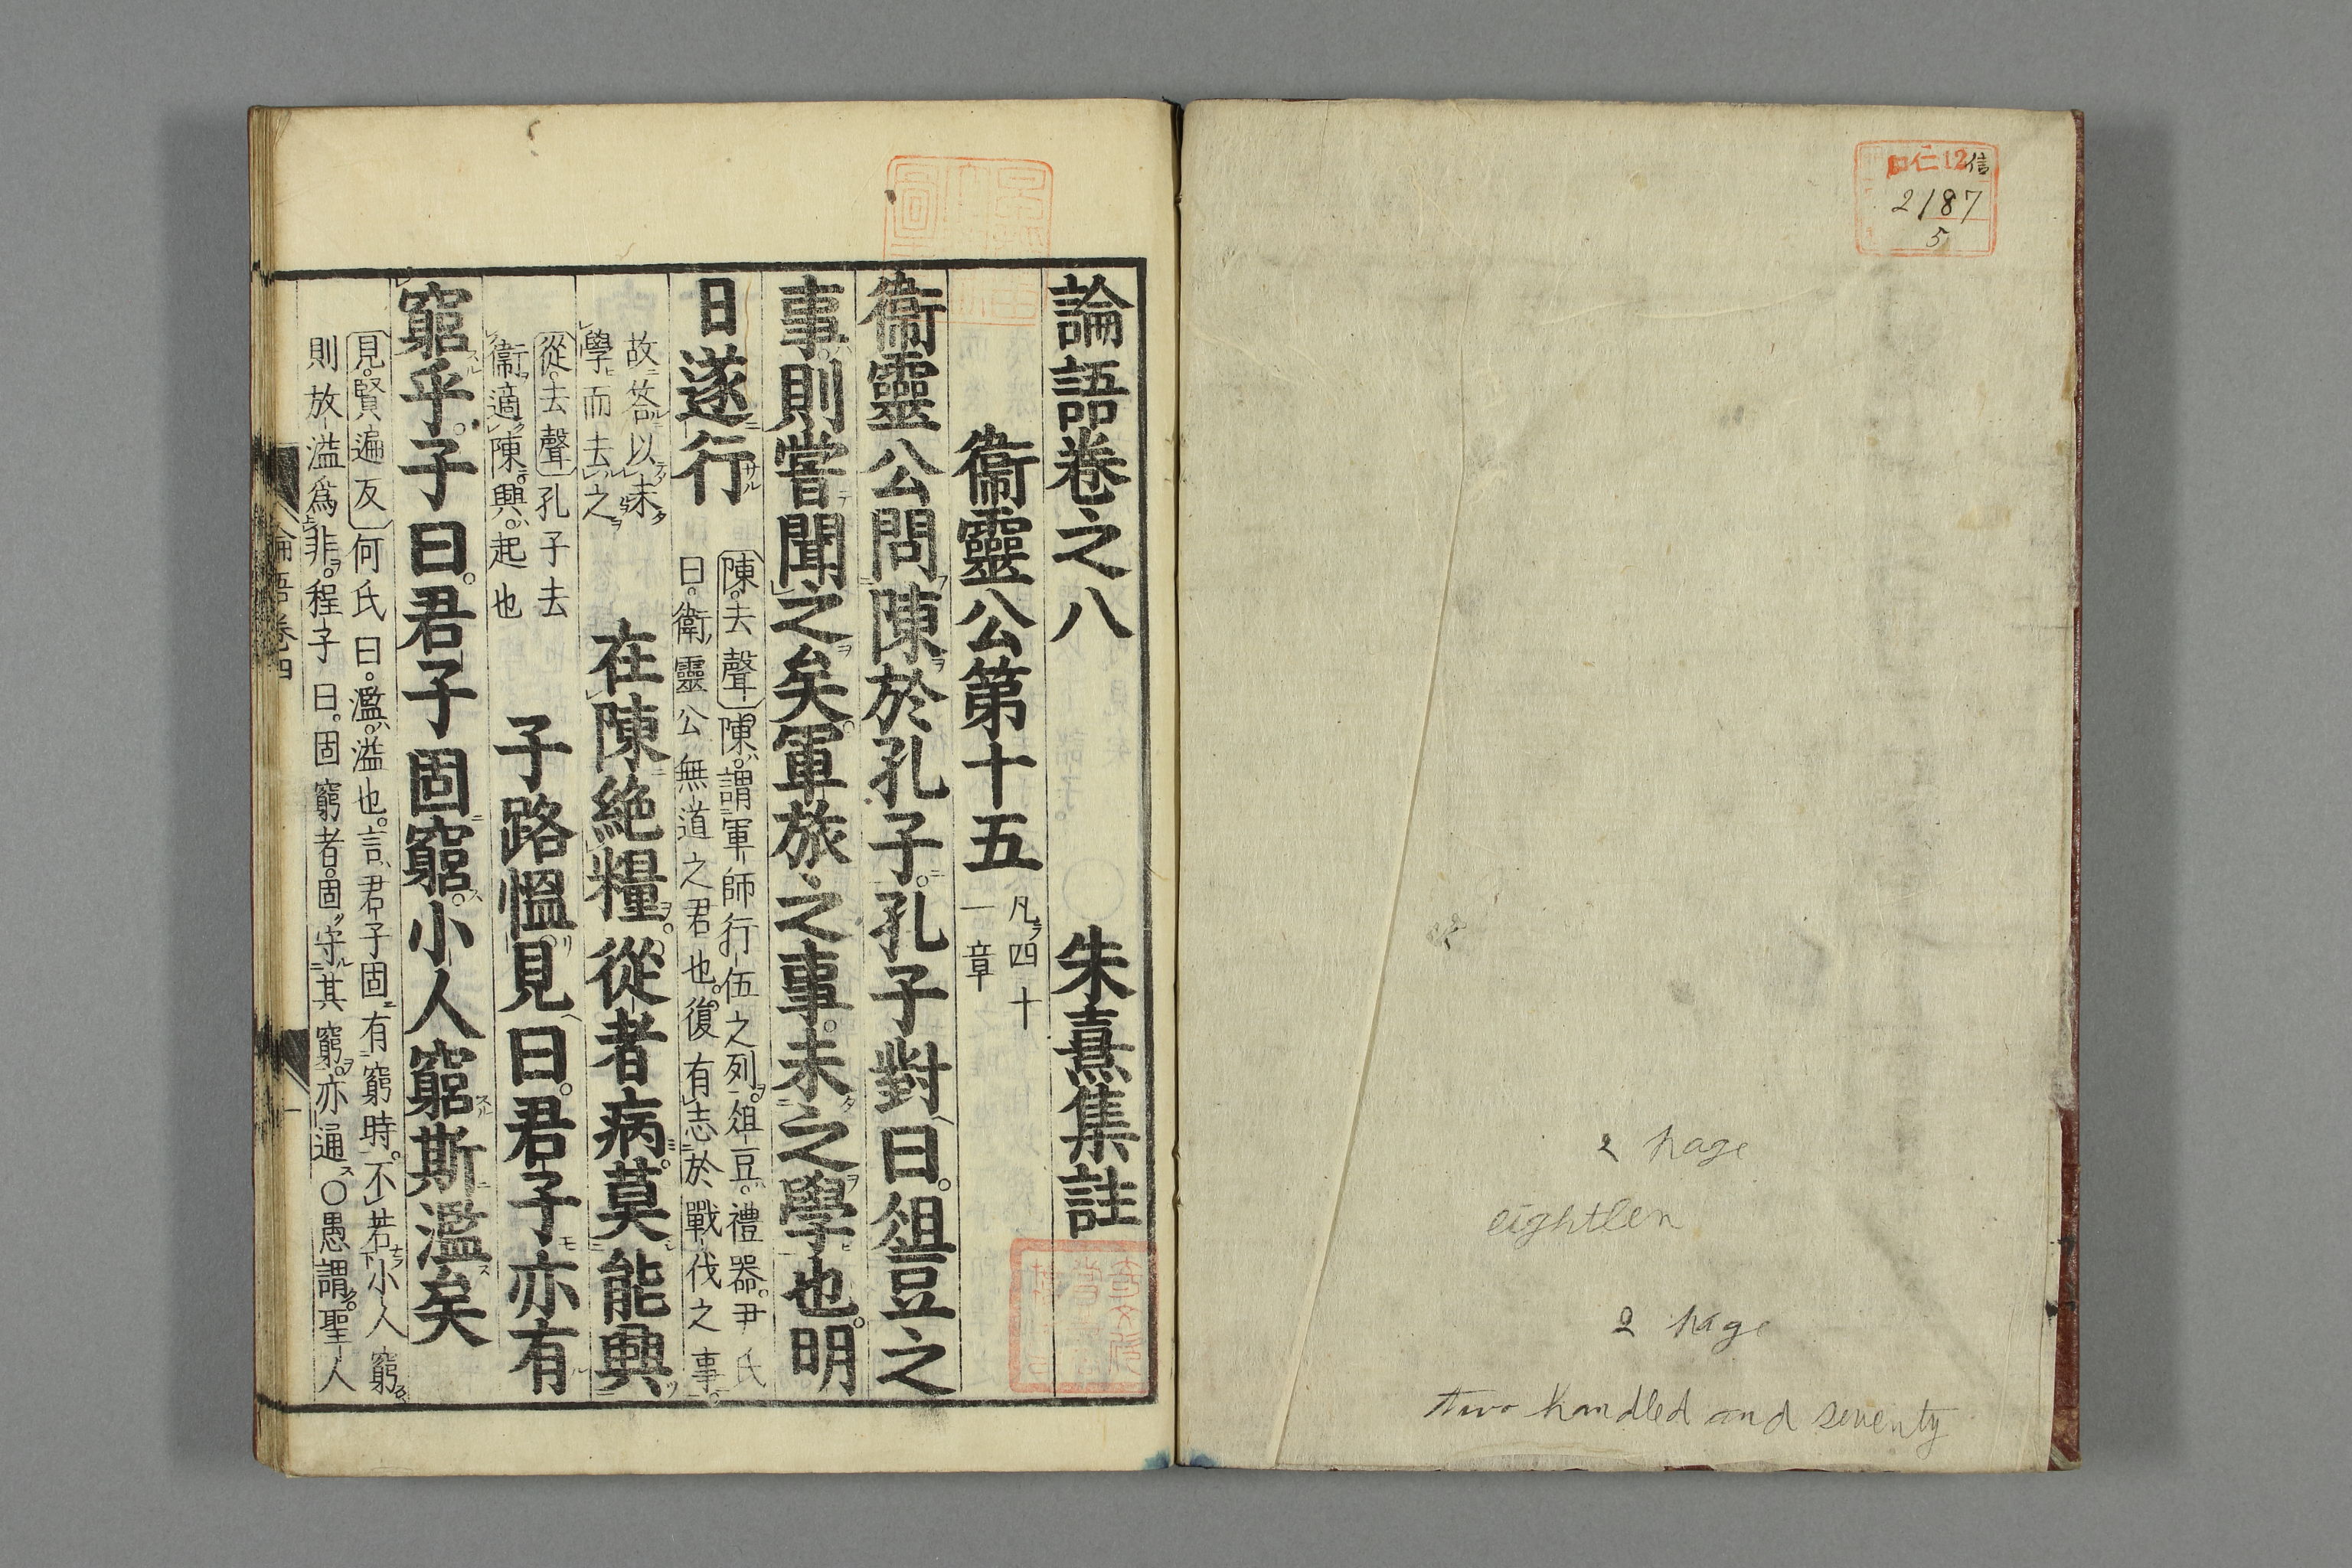 仁12信
2187
5
2 page
eightlen
2 page
two handled and seventy
論語卷之八 朱熹集註
衞靈公第十五 凡四十
一章
衞靈公問陳於孔子。孔子對曰。俎豆之
事。則嘗聞之矣。軍旅之事。未之學也。明
日遂行 陳。去聲 陳。謂軍師行伍之列。俎豆。禮器。尹氏
曰。衞靈公無道之君也。復有志於戰伐之事。
故答以未
學而去之
在陳絶糧。從者病。莫能興
從。去聲 孔子去
衞適陳。興。起也
子路慍見曰。君子亦有
窮乎。子曰。君子固窮。小人窮斯濫矣
見。賢遍反 何氏曰。濫。溢也。言君子固有窮時。不若小人窮
則放溢爲非。程子曰。固窮者。固守其窮。亦通〇愚謂。聖人
論語卷四
一